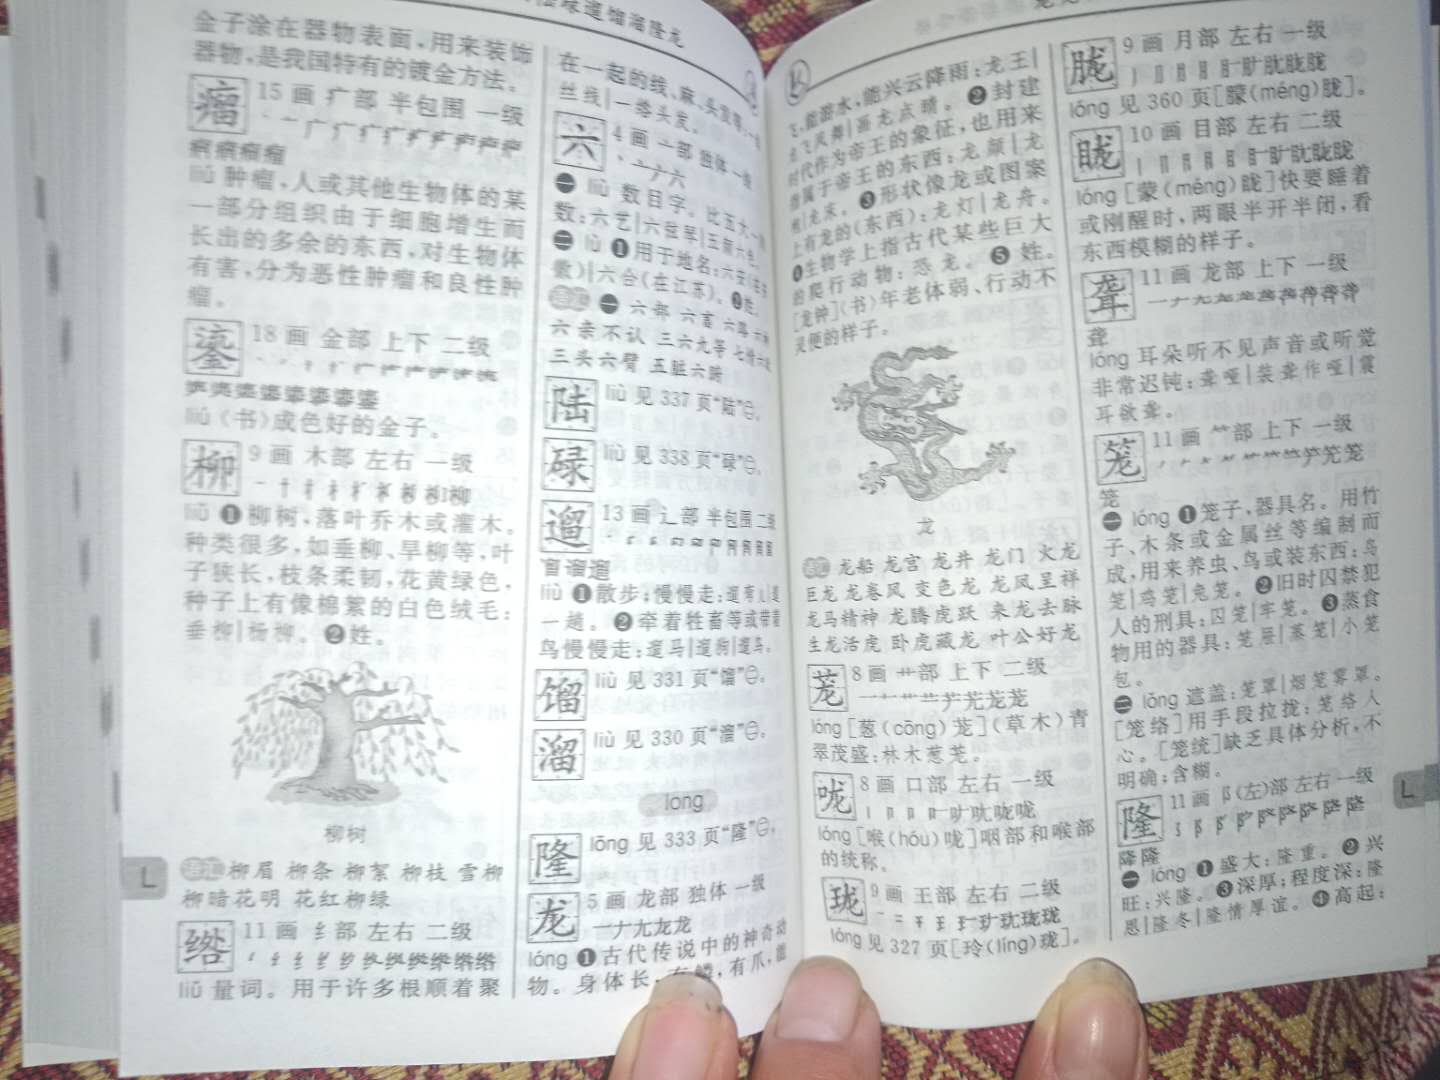 遛馏溜隆龙
金子涂在器物表面，用来装饰
器物，是我国特有的镀金方法。
瘤 15 画 疒部 半包围 一级
liú 肿瘤，人或其他生物体的某
一部分组织由于细胞增生而
长出的多余的东西，对生物体
有害，分为恶性肿瘤和良性肿
瘤。
鎏 18 画 金部 上下 二级
liú（书）成色好的金子。
柳 9 画 木部 左右 一级
liǔ ❶柳树，落叶乔木或灌木。
种类很多，如垂柳、旱柳等，叶
子狭长，枝条柔韧，花黄绿色，
种子上有像棉絮的白色绒毛：
垂柳|杨柳。❷姓。
柳树
语汇 柳眉 柳条 柳絮 柳枝 雪柳
柳暗花明 花红柳绿
绺 11 画 纟部 左右 二级
liǔ 量词。用于许多根顺着聚
在一起的线、麻、头发等：一绺
丝线|一绺头发。
六 4 画 亠部 独体 一级
㊀ liù 数目字。比五大一的
数：六艺|六弦琴|五颜六色。
㊁ lù ❶用于地名：六安（在安
徽）|六合（在江苏）。❷姓。
语汇 ㊀ 六部 六畜 六路
六亲不认 三六九等 七情六欲
三头六臂 五脏六腑
陆 liù 见 337 页“陆”㊀。
碌 liù 见 338 页“碌”㊀。
遛 13 画 辶部 半包围 二级
liù ❶散步；慢慢走：遛弯儿|遛
一趟。❷牵着牲畜等或带着
鸟慢慢走：遛马|遛狗|遛鸟。
馏 liù 见 331 页“馏”㊀。
溜 liù 见 330 页“溜”㊀。
long
隆 lōng 见 333 页“隆”㊀。
龙 5 画 龙部 独体 一级
一ナ尢龙龙
lóng ❶古代传说中的神奇动
物。身体长，有鳞，有爪，能
飞，能游水，能兴云降雨：龙王|
龙飞凤舞|画龙点睛。❷封建
时代作为帝王的象征，也用来
指属于帝王的东西：龙颜|龙
袍|龙床。❸形状像龙或图案
上有龙的（东西）：龙灯|龙舟。
❹生物学上指古代某些巨大
的爬行动物：恐龙。❺姓。
[龙钟]（书）年老体弱、行动不
灵便的样子。
龙
语汇 龙船 龙宫 龙井 龙门 火龙
巨龙 龙卷风 变色龙 龙凤呈祥
龙马精神 龙腾虎跃 来龙去脉
生龙活虎 卧虎藏龙 叶公好龙
茏 8 画 艹部 上下 二级
lóng [葱（cōng）茏]（草木）青
翠茂盛：林木葱茏。
咙 8 画 口部 左右 一级
lóng [喉（hóu）咙]咽部和喉部
的统称。
珑 9 画 王部 左右 二级
lóng 见 327 页[玲（líng）珑]。
胧 9 画 月部 左右 一级
lóng 见 360 页[朦（méng）胧]。
眬 10 画 目部 左右 二级
lóng [蒙（méng）眬]快要睡着
或刚醒时，两眼半开半闭，看
东西模糊的样子。
聋 11 画 龙部 上下 一级
聋
lóng 耳朵听不见声音或听觉
非常迟钝：聋哑|装聋作哑|震
耳欲聋。
笼 11 画 ⺮部 上下 一级
笼
㊀ lóng ❶笼子，器具名。用竹
子、木条或金属丝等编制而
成，用来养虫、鸟或装东西：鸟
笼|鸡笼|兔笼。❷旧时囚禁犯
人的刑具：囚笼|牢笼。❸蒸食
物用的器具：笼屉|蒸笼|小笼
包。
㊁ lǒng 遮盖：笼罩|烟笼雾罩。
[笼络]用手段拉拢：笼络人
心。[笼统]缺乏具体分析，不
明确；含糊。
隆 11 画 阝（左）部 左右 一级
隆隆
㊀ lóng ❶盛大：隆重。❷兴
旺：兴隆。❸深厚；程度深：隆
恩|隆冬|隆情厚谊。❹高起：
L
L